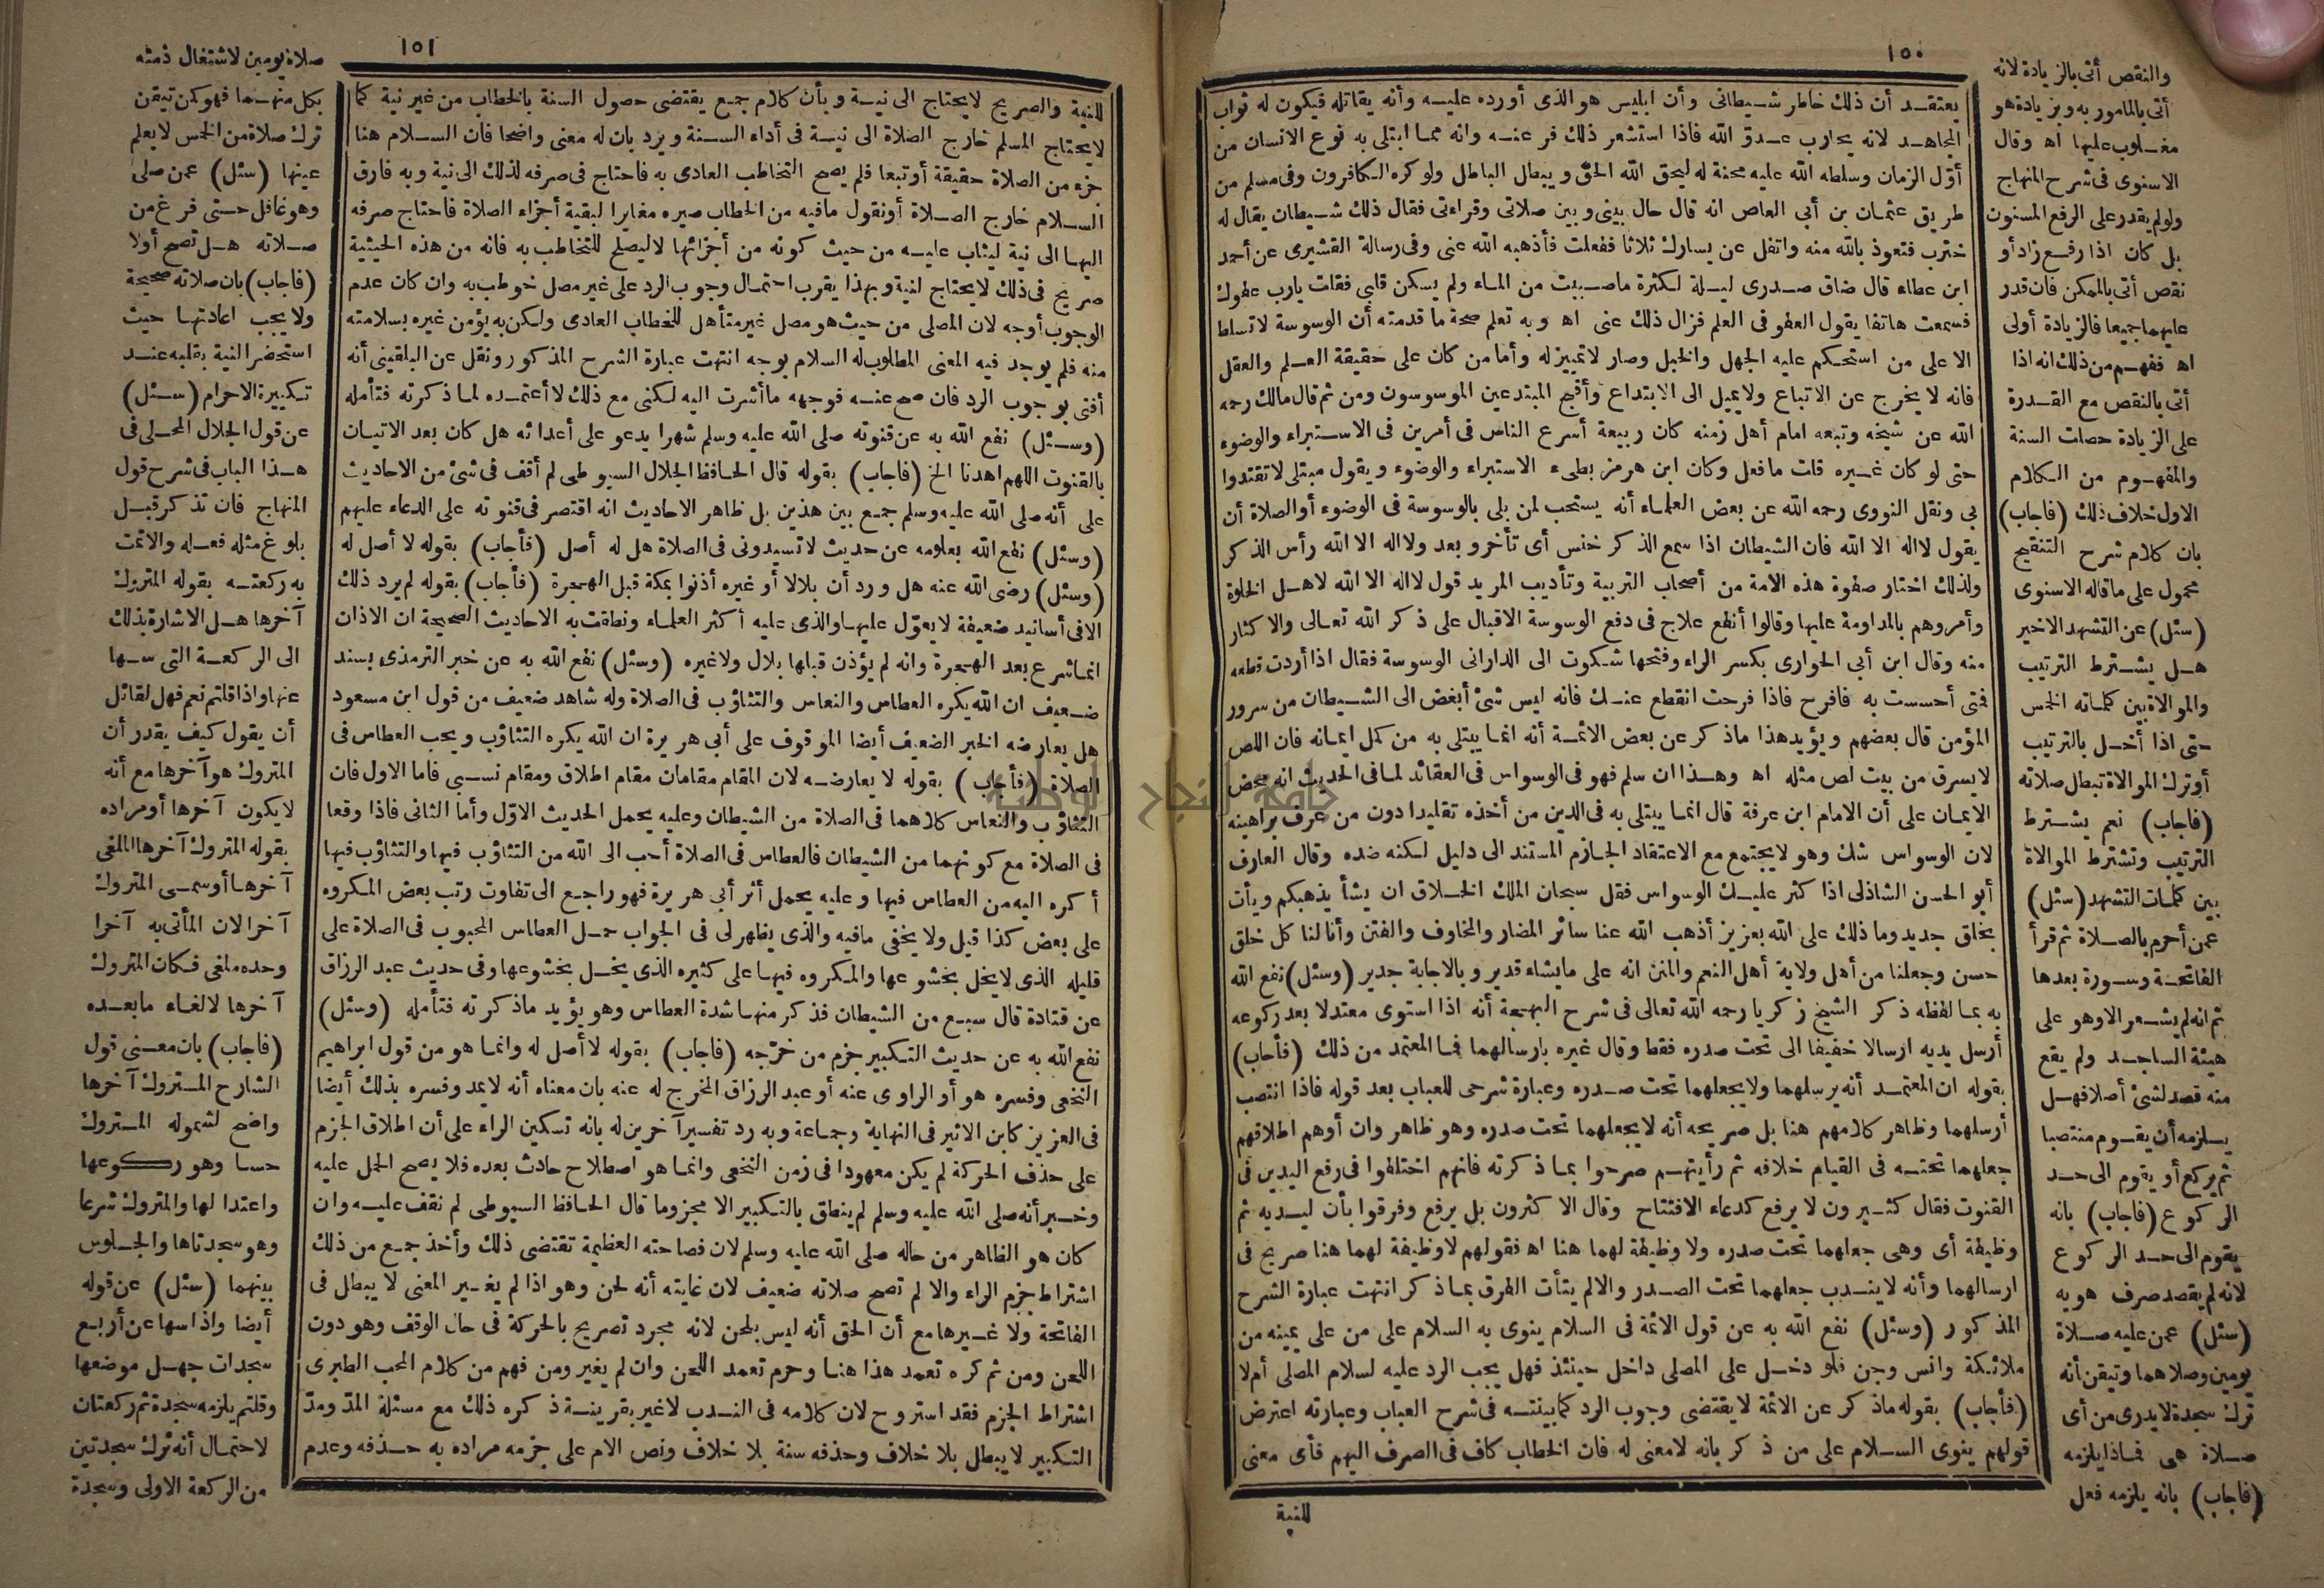 ١٥٠
يعتقد أن ذلك خاطر شيطانى وأن ابليس هو الذى أورده عليه وأنه يقاتله فيكون له ثواب
المجاهد لانه يحارب عدوّ الله فاذا استشعر ذلك فر عنه وانه مما ابتلى به نوع الانسان من
أوّل الزمان وسلطه الله عليه محنة له ليحق الله الحق ويبطل الباطل ولو كره الكافرون وفى مسلم من
طريق عثمان بن أبى العاص انه قال حال بينى وبين صلاتى وقراءتى فقال ذلك شيطان يقال له
خنزب فتعوذ بالله منه واتفل عن يسارك ثلاثا ففعلت فأذهبه الله عنى وفى رسالة القشيرى عن أحمد
ابن عطاء قال ضاق صدرى ليلة لكثرة ماصببت من الماء ولم يسكن قلبى فقلت يارب عفوك
فسمعت هاتفا يقول العفو فى العلم فزال ذلك عنى اه وبه تعلم صحة ما قدمته أن الوسوسة لا تسلط
الا على من استحكم عليه الجهل والخبل وصار لا تمييز له وأما من كان على حقيقة العلم والعقل
فانه لا يخرج عن الاتباع ولا يميل الى الابتداع وأقبح المبتدعين الموسوسون ومن ثم قال مالك رحمه
الله عن شيخه وتبعه امام أهل زمنه كان ربيعة أسرع الناس فى أمرين فى الاستبراء والوضوء
حتى لو كان غيره قلت مافعل وكان ابن هرمز بطىء الاستبراء والوضوء ويقول مبتلى لاتقتدوا
بى ونقل النووى رحمه الله عن بعض العلماء أنه يستحب لمن بلى بالوسوسة فى الوضوء أو الصلاة أن
يقول لااله الا الله فان الشيطان اذا سمع الذكر خنس أى تأخر وبعد ولااله الا الله رأس الذكر
ولذلك اختار صفوة هذه الامة من أصحاب التربية وتأديب المريد قول لااله الا الله لاهل الخلوة
وأمروهم بالمداومة عليها وقالوا أنفع علاج فى دفع الوسوسة الاقبال على ذكر الله تعالى والاكثار
منه وقال ابن أبى الحوارى بكسر الراء وفتحها شكوت الى الدارانى الوسوسة فقال اذا أردت قطعه
فتى أحسست به فافرح فاذا فرحت انقطع عنك فانه ليس شئ أبغض الى الشيطان من سرور
المؤمن قال بعضهم ويؤيد هذا ماذكر عن بعض الائمة أنه انما يبتلى به من كمل ايمانه فان اللص
لا يسرق من بيت لص مثله اه وهذا ان سلم فهو فى الوسواس فى العقائد لما فى الحديث انه محض
الايمان على أن الامام ابن عرفة قال انما يبتلى به فى الدين من أخذه تقليدا دون من عرف براهينه
لان الوسواس شك وهو لا يجتمع مع الاعتقاد الجازم المستند الى دليل لكنه ضده وقال العارف
أبو الحسن الشاذلى اذا كثر عليك الوسواس فقل سبحان الملك الخلاق ان يشأ يذهبكم ويأت
بخلق جديد وما ذلك على الله بعزيز أذهب الله عنا سائر المضار والمخاوف والفتن وأنالنا كل خلق
حسن وجعلنا من أهل ولاية أهل النعم والمنن انه على مايشاء قدير وبالاجابة جدير (وسئل) نفع الله
به بما لفظه ذكر الشيخ زكريا رحمه الله تعالى فى شرح البهجة أنه اذا استوى معتدلا بعد ركوعه
أرسل يديه ارسالا خفيفا الى تحت صدره فقط وقال غيره بارسالهما فما المعتمد من ذلك (فأجاب)
بقوله ان المعتمد أنه يرسلهما ولا يجعلهما تحت صدره وعبارة شرحى للعباب بعد قوله فاذا انتصب
أرسلهما وظاهر كلامهم هنا بل صريحه أنه لا يجعلهما تحت صدره وهو ظاهر وان أوهم اطلاقهم
جعلهما تحته فى القيام خلافه ثم رأيتهم صرحوا بما ذكرته فانهم اختلفوا فى رفع اليدين فى
القنوت فقال كثيرون لا يرفع كدعاء الافتتاح وقال الاكثرون بل يرفع وفرقوا بأن ليديه ثم
وظيفة أى وهى جعلهما تحت صدره ولا وظيفة لهما هنا اه فقولهم لاوظيفة لهما هنا صريح فى
ارسالهما وأنه لا يندب جعلهما تحت الصدر والا لم يتأت الفرق بما ذكر انتهت عبارة الشرح
المذكور (وسئل) نفع الله به عن قول الائمة فى السلام ينوى به السلام على من على يمينه من
ملائكة وانس وجن فلو دخل على المصلى داخل حينئذ فهل يجب الرد عليه لسلام المصلى أم لا
(فأجاب) بقوله ماذكر عن الائمة لا يقتضى وجوب الرد كما بينته فى شرح العباب وعبارته اعترض
قولهم ينوى السلام على من ذكر بانه لامعنى له فان الخطاب كاف فى الصرف اليهم فأى معنى
للنية
والنقص أتى بالزيادة لانه
أتى بالمأمور به وبزيادة هو
مغلوب عليها اه وقال
الاسنوى فى شرح المنهاج
ولو لم يقدر على الرفع المسنون
بل كان اذا رفع زاد أو
نقص أتى بالممكن فان قدر
عليهما جميعا فالزيادة أولى
اه ففهم من ذلك انه اذا
أتى بالنقص مع القدرة
على الزيادة حصلت السنة
والمفهوم من الكلام
الاول خلاف ذلك (فأجاب)
بان كلام شرح التنقيح
محمول على ماقاله الاسنوى
(سئل) عن التشهد الاخير
هل يشترط الترتيب
والموالاة بين كلماته الخمس
حتى اذا أخل بالترتيب
أو ترك الموالاة تبطل صلاته
(فأجاب) نعم يشترط
الترتيب وتشترط الموالاة
بين كلمات التشهد (سئل)
عمن أحرم بالصلاة ثم قرأ
الفاتحة وسورة بعدها
ثم انه لم يشعر الا وهو على
هيئة الساجد ولم يقع
منه قصد لشئ أصلا فهل
يلزمه أن يقوم منتصبا
ثم يركع أو يقوم الى حد
الركوع (فأجاب) بانه
يقوم الى حد الركوع
لانه لم يقصد صرف هويه
(سئل) عمن عليه صلاة
يومين وصلاهما وتيقن أنه
ترك سجدة لا يدرى من أى
صلاة هى فماذا يلزمه
(فأجاب) بانه يلزمه فعل
١٥١
للنية والصريح لا يحتاج الى نية وبأن كلام جمع يقتضى حصول السنة بالخطاب من غير نية كما
لا يحتاج المسلم خارج الصلاة الى نية فى أداء السنة ويرد بان له معنى واضحا فان السلام هنا
جزء من الصلاة حقيقة أو تبعا فلم يصح التخاطب العادى به فاحتاج فى صرفه لذلك الى نية وبه فارق
السلام خارج الصلاة أو نقول مافيه من الخطاب صيره مغايرا لبقية أجزاء الصلاة فاحتاج صرفه
اليها الى نية ليثاب عليه من حيث كونه من أجزائها لا ليصلح للتخاطب به فانه من هذه الحيثية
صريح فى ذلك لا يحتاج لنية وبهذا يقرب احتمال وجوب الرد على غير مصل خوطب به وان كان عدم
الوجوب أوجه لان المصلى من حيث هو مصل غير متأهل للخطاب العادى ولكن به يؤمن غيره بسلامته
منه فلم يوجد فيه المعنى المطلوب له السلام بوجه انتهت عبارة الشرح المذكور ونقل عن البلقينى أنه
أفتى بوجوب الرد فان صح عنه فوجهه ماأشرت اليه لكنى مع ذلك لا أعتمده لما ذكرته فتأمله
(وسئل) نفع الله به عن قنوته صلى الله عليه وسلم شهرا يدعو على أعدائه هل كان بعد الاتيان
بالقنوت اللهم اهدنا الخ (فأجاب) بقوله قال الحافظ الجلال السيوطى لم أقف فى شئ من الاحاديث
على أنه صلى الله عليه وسلم جمع بين هذين بل ظاهر الاحاديث انه اقتصر فى قنوته على الدعاء عليهم
(وسئل) نفع الله بعلومه عن حديث لا تسيدونى فى الصلاة هل له أصل (فأجاب) بقوله لا أصل له
(وسئل) رضى الله عنه هل ورد أن بلالا أو غيره أذنوا بمكة قبل الهجرة (فأجاب) بقوله لم يرد ذلك
الا فى أسانيد ضعيفة لا يعوّل عليها والذى عليه أكثر العلماء ونطقت به الاحاديث الصحيحة ان الاذان
انما شرع بعد الهجرة وانه لم يؤذن قبلها بلال ولا غيره (وسئل) نفع الله به عن خبر الترمذى بسند
ضعيف ان الله يكره العطاس والنعاس والتثاؤب فى الصلاة وله شاهد ضعيف من قول ابن مسعود
هل يعارضه الخبر الضعيف أيضا الموقوف على أبى هريرة ان الله يكره التثاؤب ويحب العطاس فى
الصلاة (فأجاب) بقوله لا يعارضه لان المقام مقامان مقام اطلاق ومقام نسبى فاما الاول فان
التثاؤب والنعاس كلاهما فى الصلاة من الشيطان وعليه يحمل الحديث الاوّل وأما الثانى فاذا وقعا
فى الصلاة مع كونهما من الشيطان فالعطاس فى الصلاة أحب الى الله من التثاؤب فيها والتثاؤب فيها
أكره اليه من العطاس فيها وعليه يحمل أثر أبى هريرة فهو راجع الى تفاوت رتب بعض المكروه
على بعض كذا قيل ولا يخفى مافيه والذى يظهر لى فى الجواب حمل العطاس المحبوب فى الصلاة على
قليله الذى لا يخل بخشوعها والمكروه فيها على كثيره الذى يخل بخشوعها وفى حديث عبد الرزاق
عن قتادة قال سبع من الشيطان فذكر منها شدة العطاس وهو يؤيد ماذكرته فتأمله (وسئل)
نفع الله به عن حديث التكبير جزم من خرّجه (فأجاب) بقوله لا أصل له وانما هو من قول ابراهيم
النخعى وفسره هو أو الراوى عنه أو عبد الرزاق المخرج له عنه بان معناه أنه لا يمد وفسره بذلك أيضا
فى العزيز كابن الاثير فى النهاية وجماعة وبه رد تفسير آخرين له بانه تسكين الراء على أن اطلاق الجزم
على حذف الحركة لم يكن معهودا فى زمن النخعى وانما هو اصطلاح حادث بعده فلا يصح الحمل عليه
وخبر أنه صلى الله عليه وسلم لم ينطق بالتكبير الا مجزوما قال الحافظ السيوطى لم نقف عليه وان
كان هو الظاهر من حاله صلى الله عليه وسلم لان فصاحته العظيمة تقتضى ذلك وأخذ جمع من ذلك
اشتراط جزم الراء والا لم تصح صلاته ضعيف لان غايته أنه لحن وهو اذا لم يغير المعنى لا يبطل فى
الفاتحة ولا غيرها مع أن الحق أنه ليس بلحن لانه مجرد تصريح بالحركة فى حال الوقف وهو دون
اللحن ومن ثم كره تعمد هذا هنا وحرم تعمد اللحن وان لم يغير ومن فهم من كلام المحب الطبرى
اشتراط الجزم فقد استروح لان كلامه فى الندب لا غير بقرينة ذكره ذلك مع مسئلة المدّ ومدّ
التكبير لا يبطل بلا خلاف وحذفه سنة بلا خلاف ونص الام على جزمه مراده به حذفه وعدم
صلاة يومين لاشتغال ذمته
بكل منهما فهو كمن تيقن
ترك صلاة من الخمس لا يعلم
عينها (سئل) عمن صلى
وهو غافل حتى فرغ من
صلاته هل تصح أولا
(فأجاب) بان صلاته صحيحة
ولا يجب اعادتها حيث
استحضر النية بقلبه عند
تكبيرة الاحرام (سئل)
عن قول الجلال المحلى فى
هذا الباب فى شرح قول
المنهاج فان تذكر قبل
بلوغ مثله فعله والا تمت
به ركعته بقوله المتروك
آخرها هل الاشارة بذلك
الى الركعة التى سها
عنها واذا قلتم نعم فهل لقائل
أن يقول كيف يقدر أن
المتروك هو آخرها مع أنه
لا يكون آخرها أو مراده
بقوله المتروك آخرها الملغى
آخرها أو سمى المتروك
آخرا لان المأتى به آخرا
وحده ملغى فكان المتروك
آخرها لالغاء مابعده
(فأجاب) بان معنى قول
الشارح المتروك آخرها
واضح لشموله المتروك
حسا وهو ركوعها
واعتدالها والمتروك شرعا
وهو سجدتاها والجلوس
بينهما (سئل) عن قوله
أيضا واذا سها عن أربع
سجدات جهل موضعها
وقلتم يلزمه سجدة ثم ركعتان
لاحتمال أنه ترك سجدتين
من الركعة الاولى وسجدة
جامعة النجاح الوطنية